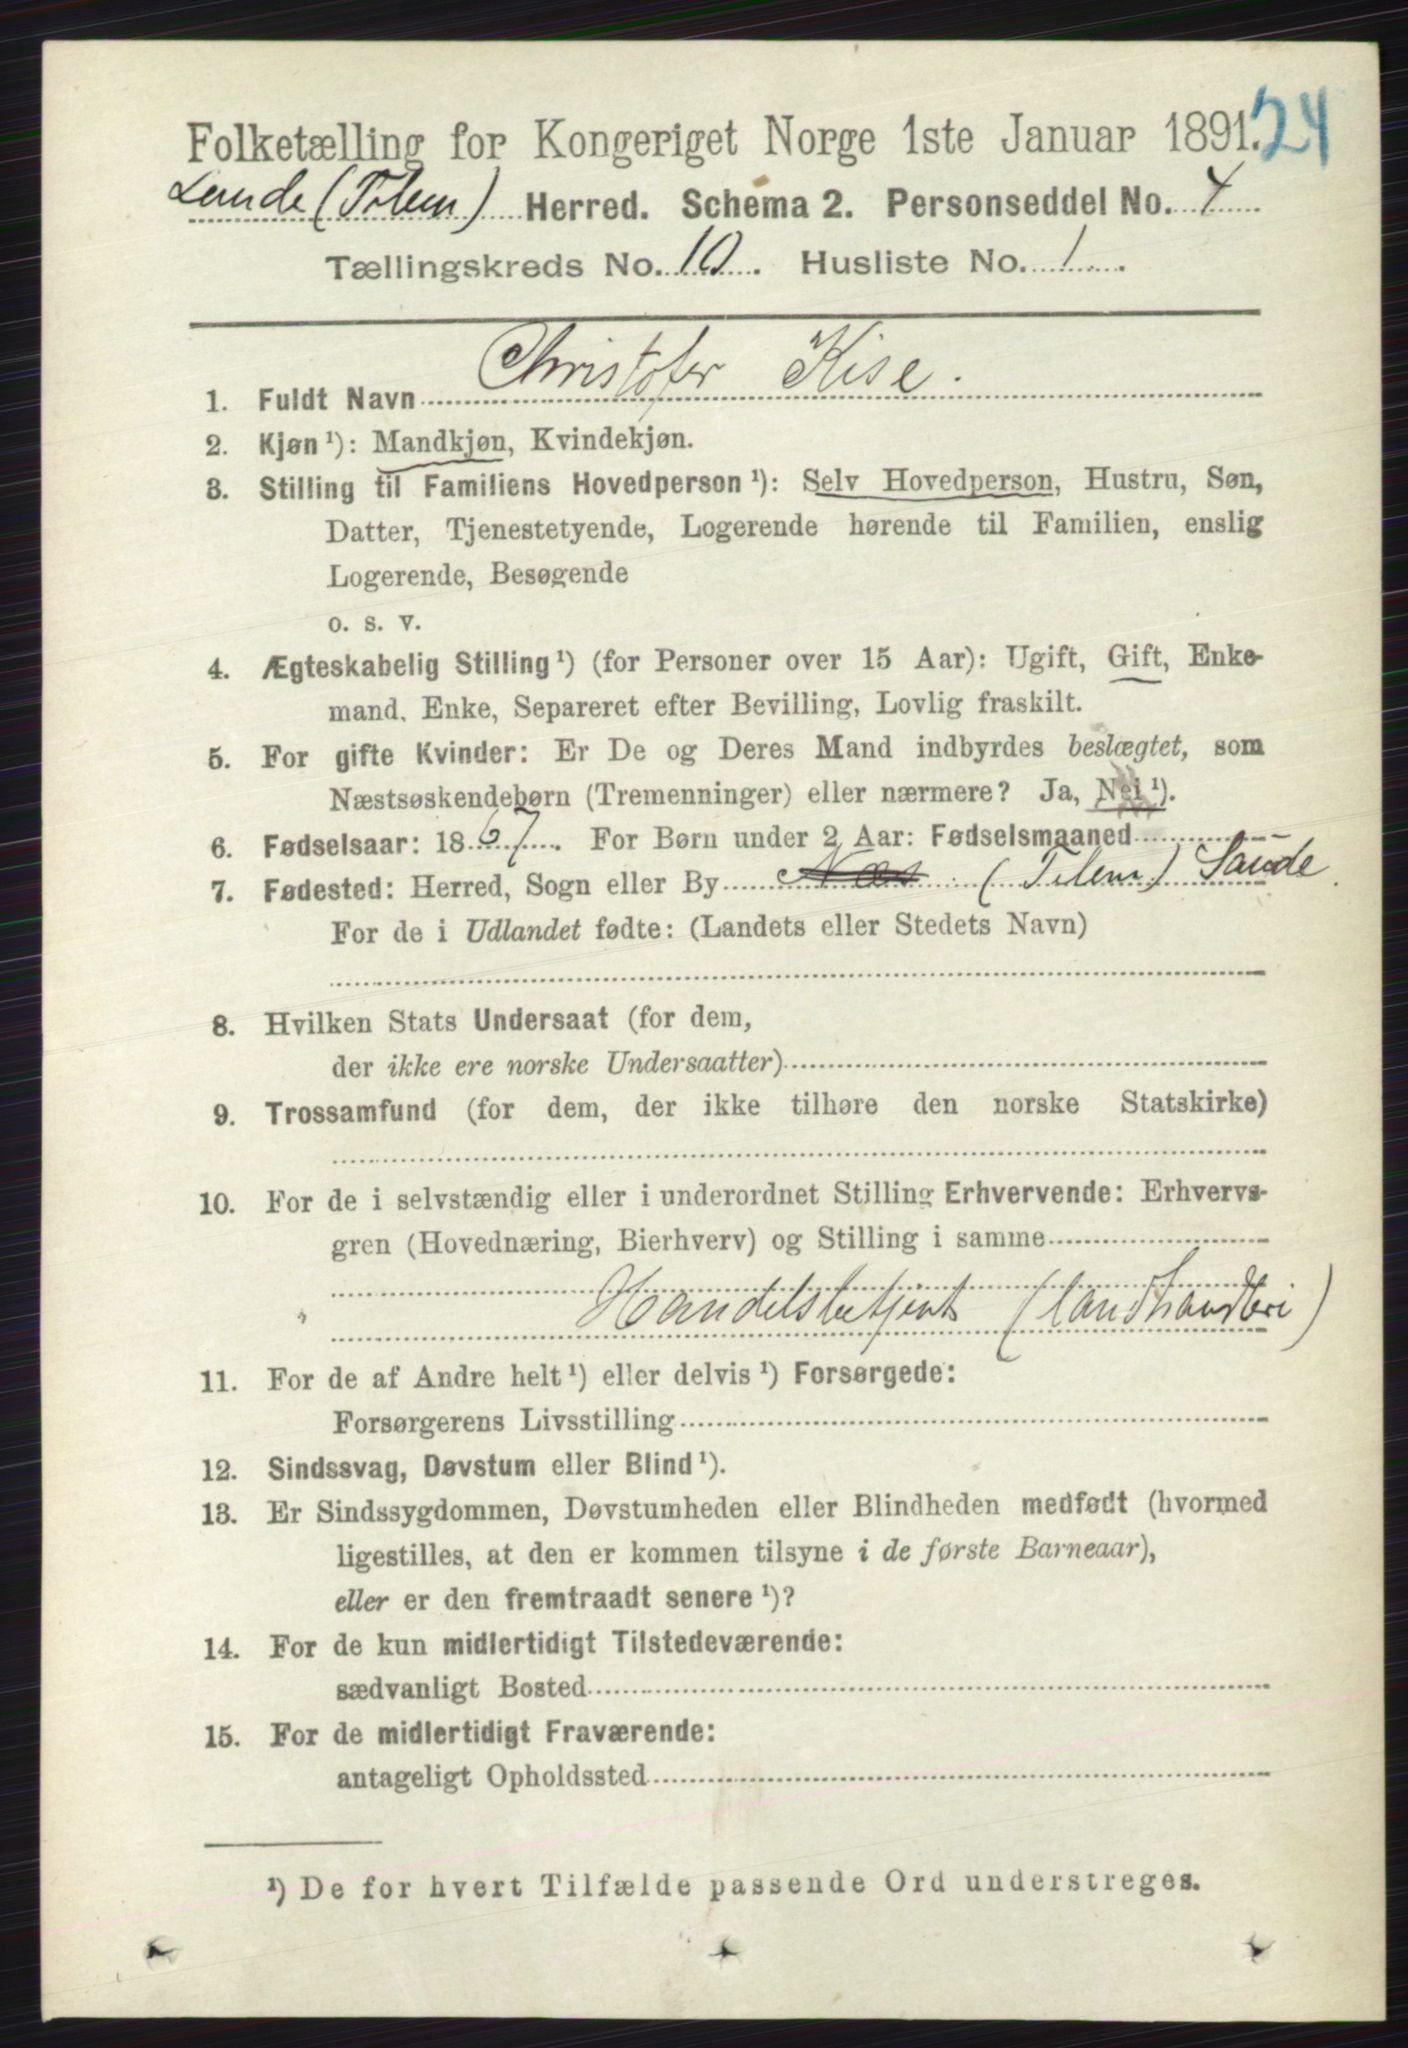 Folketælling for Kongeriget Norge 1ste Januar 1891. 24
Lunde (Tilem) Herred. Schema 2. Personseddel No. 4
Tællingskreds No. 10. Husliste No. 1.
1. Fuldt Navn Christofer Kise.
2. Kjøn ¹): Mandkjøn, Kvindekjøn.
3. Stilling til Familiens Hovedperson ¹): Selv Hovedperson, Hustru, Søn,
Datter, Tjenestetyende, Logerende hørende til Familien, enslig
Logerende, Besøgende
o. s. v.
4. Ægteskabelig Stilling ¹) (for Personer over 15 Aar): Ugift, Gift, Enke-
mand, Enke, Separeret efter Bevilling, Lovlig fraskilt.
5. For gifte Kvinder: Er De og Deres Mand indbyrdes beslægtet, som
Næstsøskendebørn (Tremenninger) eller nærmere? Ja, Nei ¹).
6. Fødselsaar: 1867. For Børn under 2 Aar: Fødselsmaaned
7. Fødested: Herred, Sogn eller By Næs (Tilem) Saude.
For de i Udlandet fødte: (Landets eller Stedets Navn)
8. Hvilken Stats Undersaat (for dem,
der ikke ere norske Undersaatter)
9. Trossamfund (for dem, der ikke tilhøre den norske Statskirke)
10. For de i selvstændig eller i underordnet Stilling Erhvervende: Erhvervs-
gren (Hovednæring, Bierhverv) og Stilling i samme
Handelsbetjent (landhandleri)
11. For de af Andre helt ¹) eller delvis ¹) Forsørgede:
Forsørgerens Livsstilling
12. Sindssvag, Døvstum eller Blind ¹).
13. Er Sindssygdommen, Døvstumheden eller Blindheden medfødt (hvormed
ligestilles, at den er kommen tilsyne i de første Barneaar),
eller er den fremtraadt senere ¹)?
14. For de kun midlertidigt Tilstedeværende:
sædvanligt Bosted
15. For de midlertidigt Fraværende:
antageligt Opholdssted
¹) De for hvert Tilfælde passende Ord understreges.